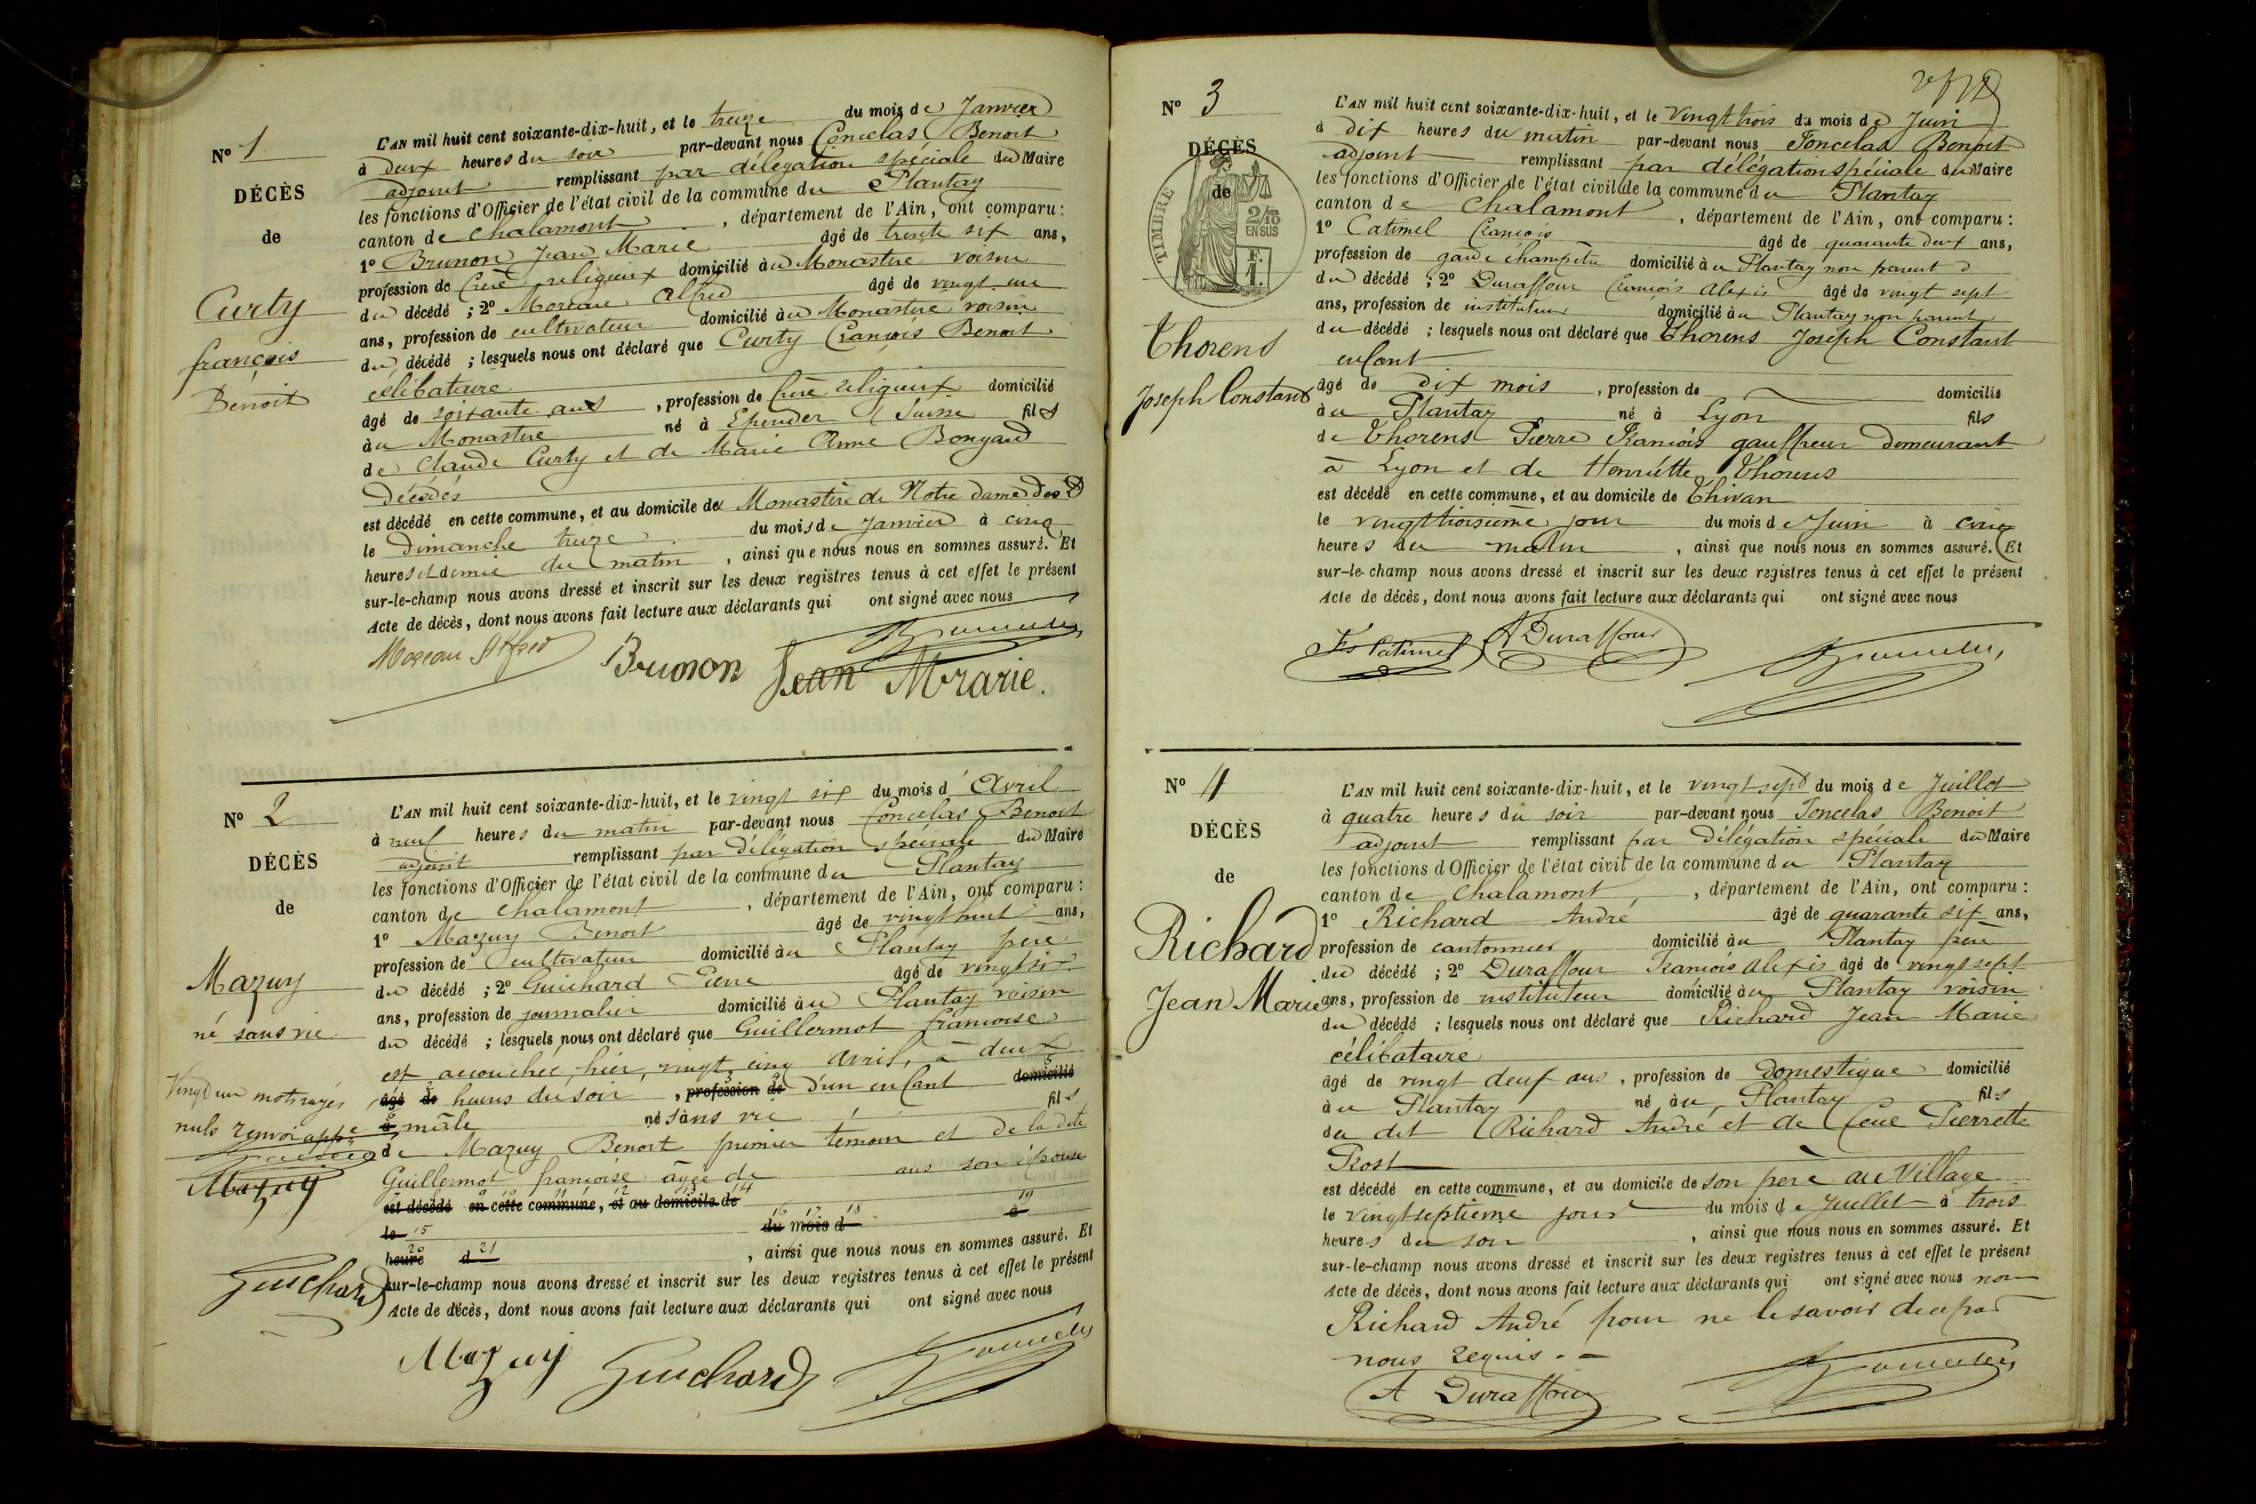 N° 1
DÉCÈS
de
Curty
françois
Benoit
L'AN mil huit cent soixante-dix-huit, et le treize du mois de Janvier
à deux heures du soir par-devant nous Foncelas Benoit
adjoint remplissant par délégation spéciale du Maire
les fonctions d'Officier de l'état civil de la commune du Plantay
canton de Chalamont, département de l'Ain, ont comparu :
1° Brunon Jean Marie âgé de trente six ans,
profession de frère religieux domicilié au Monastère voisin
du décédé ; 2° Moreau Alfred âgé de vingt un
ans, profession de cultivateur domicilié au Monastère voisin
du décédé ; lesquels nous ont déclaré que Curty François Benoit
célibataire
âgé de soixante ans, profession de frère religieux domicilié
au Monastère né à Epender (Suisse fils
de Claude Curty et de Marie Anne Bongard
Décédés
est décédé en cette commune, et au domicile de Monastère de Notre Dame des D
le Dimanche treize du mois de Janvier à cinq
heures et demie du matin, ainsi que nous nous en sommes assuré. Et
sur-le-champ nous avons dressé et inscrit sur les deux registres tenus à cet effet le présent
Acte de décès, dont nous avons fait lecture aux déclarants qui ont signé avec nous
Moreau Alfred Brunon Jean Mrarie.
N° 2
DÉCÈS
de
Mazuy
né sans vie
Vingt un mots rayés
nuls renvoi appé
Mazuy
Guichard
L'AN mil huit cent soixante-dix-huit, et le vingt six du mois d'Avril
à neuf heures du matin par-devant nous Foncelas Benoit
adjoint remplissant par délégation spéciale du Maire
les fonctions d'Officier de l'état civil de la commune du Plantay
canton de Chalamont, département de l'Ain, ont comparu :
1° Mazuy Benoit âgé de vingt huit ans,
profession de cultivateur domicilié au Plantay père
du décédé ; 2° Guichard Pierre âgé de vingt six
ans, profession de journalier domicilié au Plantay voisin
du décédé ; lesquels nous ont déclaré que Guillermot françoise
est accouchée, hier, vingt cinq avril, à deux
âgé de heures du soir, profession de d'un enfant domicilié
à mâle né sans vie fils
de Mazuy Benoit premier témoin et de la dite
Guillermot françoise âgée de ans son épouse
est décédé en cette commune, et au domicile de 14
le 15 du mois d 16 17 18 à 19
heure 20 d 21, ainsi que nous nous en sommes assuré. Et
sur-le-champ nous avons dressé et inscrit sur les deux registres tenus à cet effet le présent
Acte de décès, dont nous avons fait lecture aux déclarants qui ont signé avec nous
Mazuy Guichard
N° 3
DÉCÈS
de
TIMBRE
2/10
EN SUS
F.
1.
Thorens
Joseph Constant
L'AN mil huit cent soixante-dix-huit, et le vingt trois du mois de Juin
à dix heures du matin par-devant nous Foncelas Benoit
adjoint remplissant par délégation spéciale du Maire
les fonctions d'Officier de l'état civil de la commune du Plantay
canton de Chalamont, département de l'Ain, ont comparu :
1° Catimel François âgé de quarante deux ans,
profession de garde champêtre domicilié au Plantay non parent
du décédé ; 2° Duraffour François Alexis âgé de vingt sept
ans, profession de instituteur domicilié au Plantay non parent
du décédé ; lesquels nous ont déclaré que Thorens Joseph Constant
enfant
âgé de dix mois, profession de domicilié
au Plantay né à Lyon fils
de Thorens Pierre François gauffreur demeurant
à Lyon et de Henriette Thorens
est décédé en cette commune, et au domicile de Thivan
le vingt troisième jour du mois de Juin à cinq
heures du matin, ainsi que nous nous en sommes assuré. Et
sur-le-champ nous avons dressé et inscrit sur les deux registres tenus à cet effet le présent
Acte de décès, dont nous avons fait lecture aux déclarants qui ont signé avec nous
Fs Catimel A Duraffour
N° 4
DÉCÈS
de
Richard
Jean Marie
L'AN mil huit cent soixante-dix-huit, et le vingt sept du mois de Juillet
à quatre heures du soir par-devant nous Foncelas Benoit
adjoint remplissant par délégation spéciale du Maire
les fonctions d'Officier de l'état civil de la commune du Plantay
canton de Chalamont, département de l'Ain, ont comparu :
1° Richard André âgé de quarante six ans,
profession de cantonnier domicilié au Plantay père
du décédé ; 2° Duraffour François Alexis âgé de vingt sept
ans, profession de instituteur domicilié au Plantay voisin
du décédé ; lesquels nous ont déclaré que Richard Jean Marie
célibataire
âgé de vingt deux ans, profession de Domestique domicilié
au Plantay né au Plantay fils
du dit Richard André et de feue Pierrette
Prost
est décédé en cette commune, et au domicile de son père au Village
le vingt septième jour du mois de Juillet à trois
heures du soir, ainsi que nous nous en sommes assuré. Et
sur-le-champ nous avons dressé et inscrit sur les deux registres tenus à cet effet le présent
Acte de décès, dont nous avons fait lecture aux déclarants qui ont signé avec nous non
Richard André pour ne le savoir de ce par
nous requis. -
A Duraffour